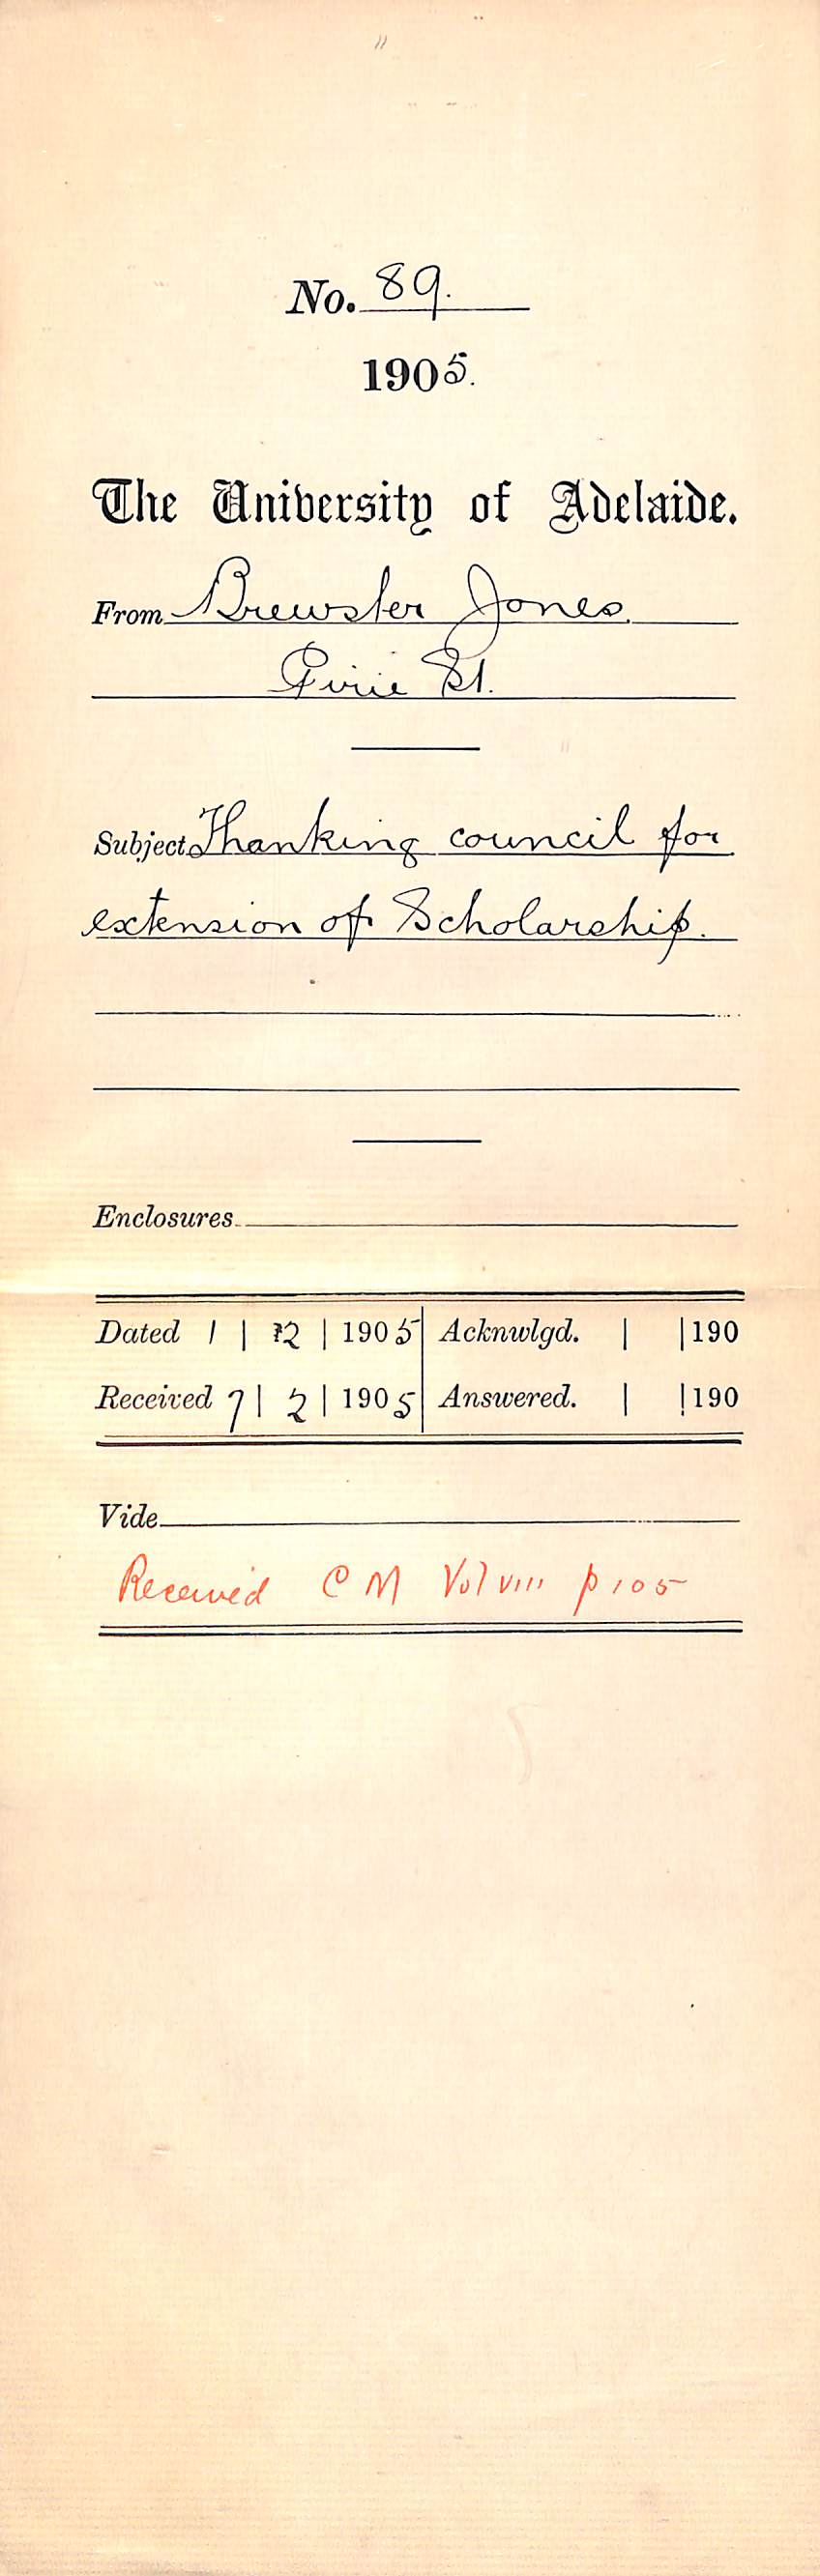 No. 89.
1905.
The University of Adelaide.
From Brewster Jones.
Pirie St.
Subject Thanking council for
extension of Scholarship.
Enclosures
Dated 1 | 2 | 1905 Acknwlgd. | | 190
Received 7 | 2 | 1905 Answered. | | 190
Vide
Received C M Vol VIII p 105